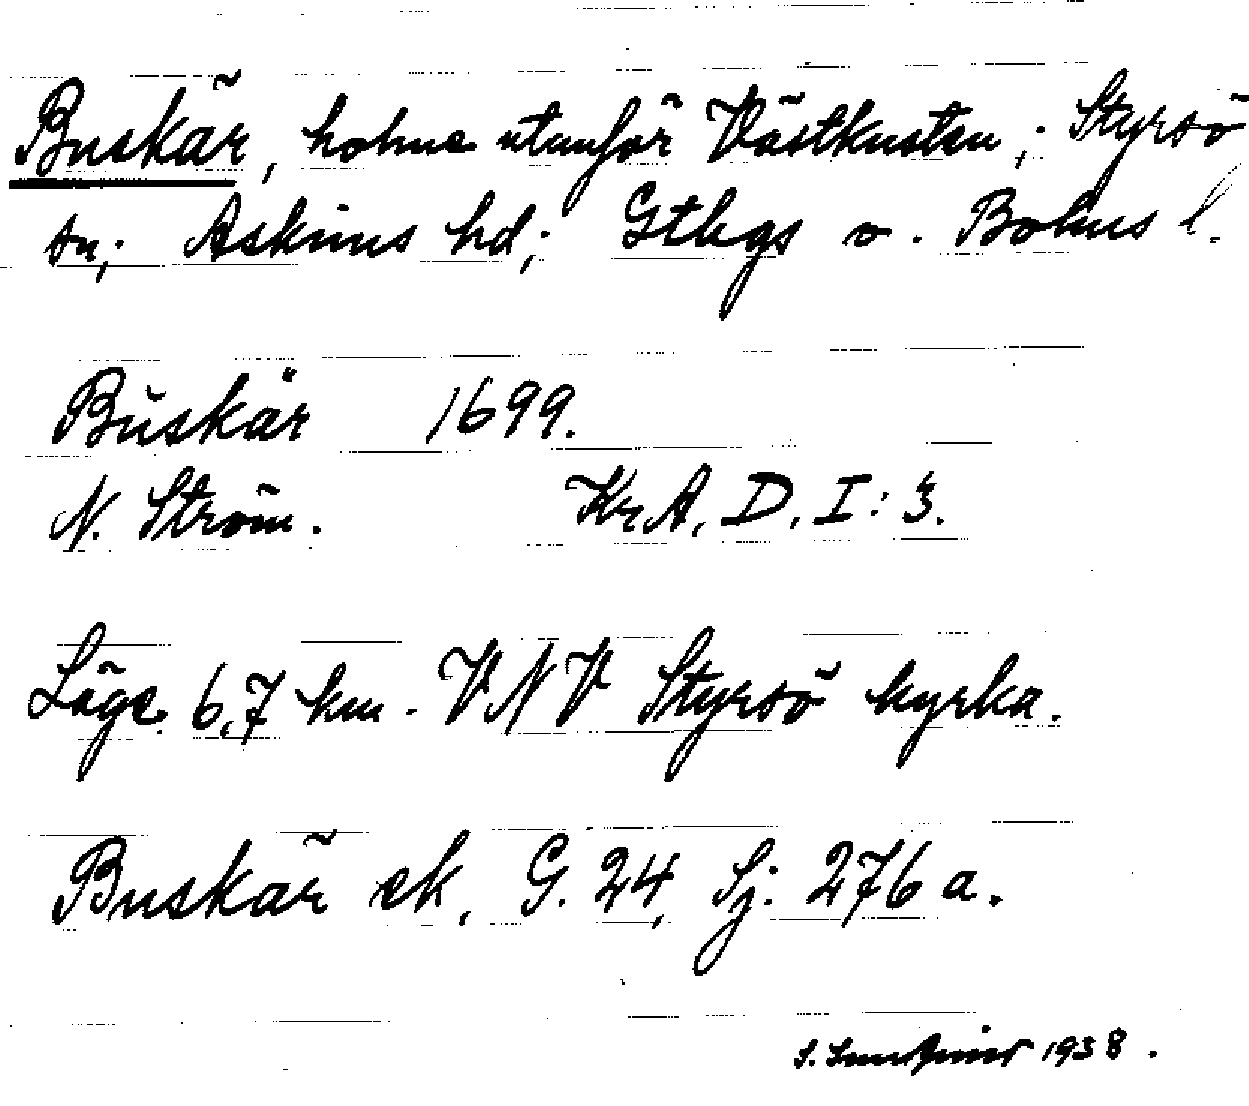 Buskär, holme utanför Västkusten; Styrsö
sn; Askims hd; Gtbgs o. Bohus l.
Bŭskär 1699.
N. Ström. KrA, D, I: 3.
Läge 6,7 km. VNV Styrsö kyrka.
Buskär ek, G. 24, Sj: 276 a.
S. 1938.